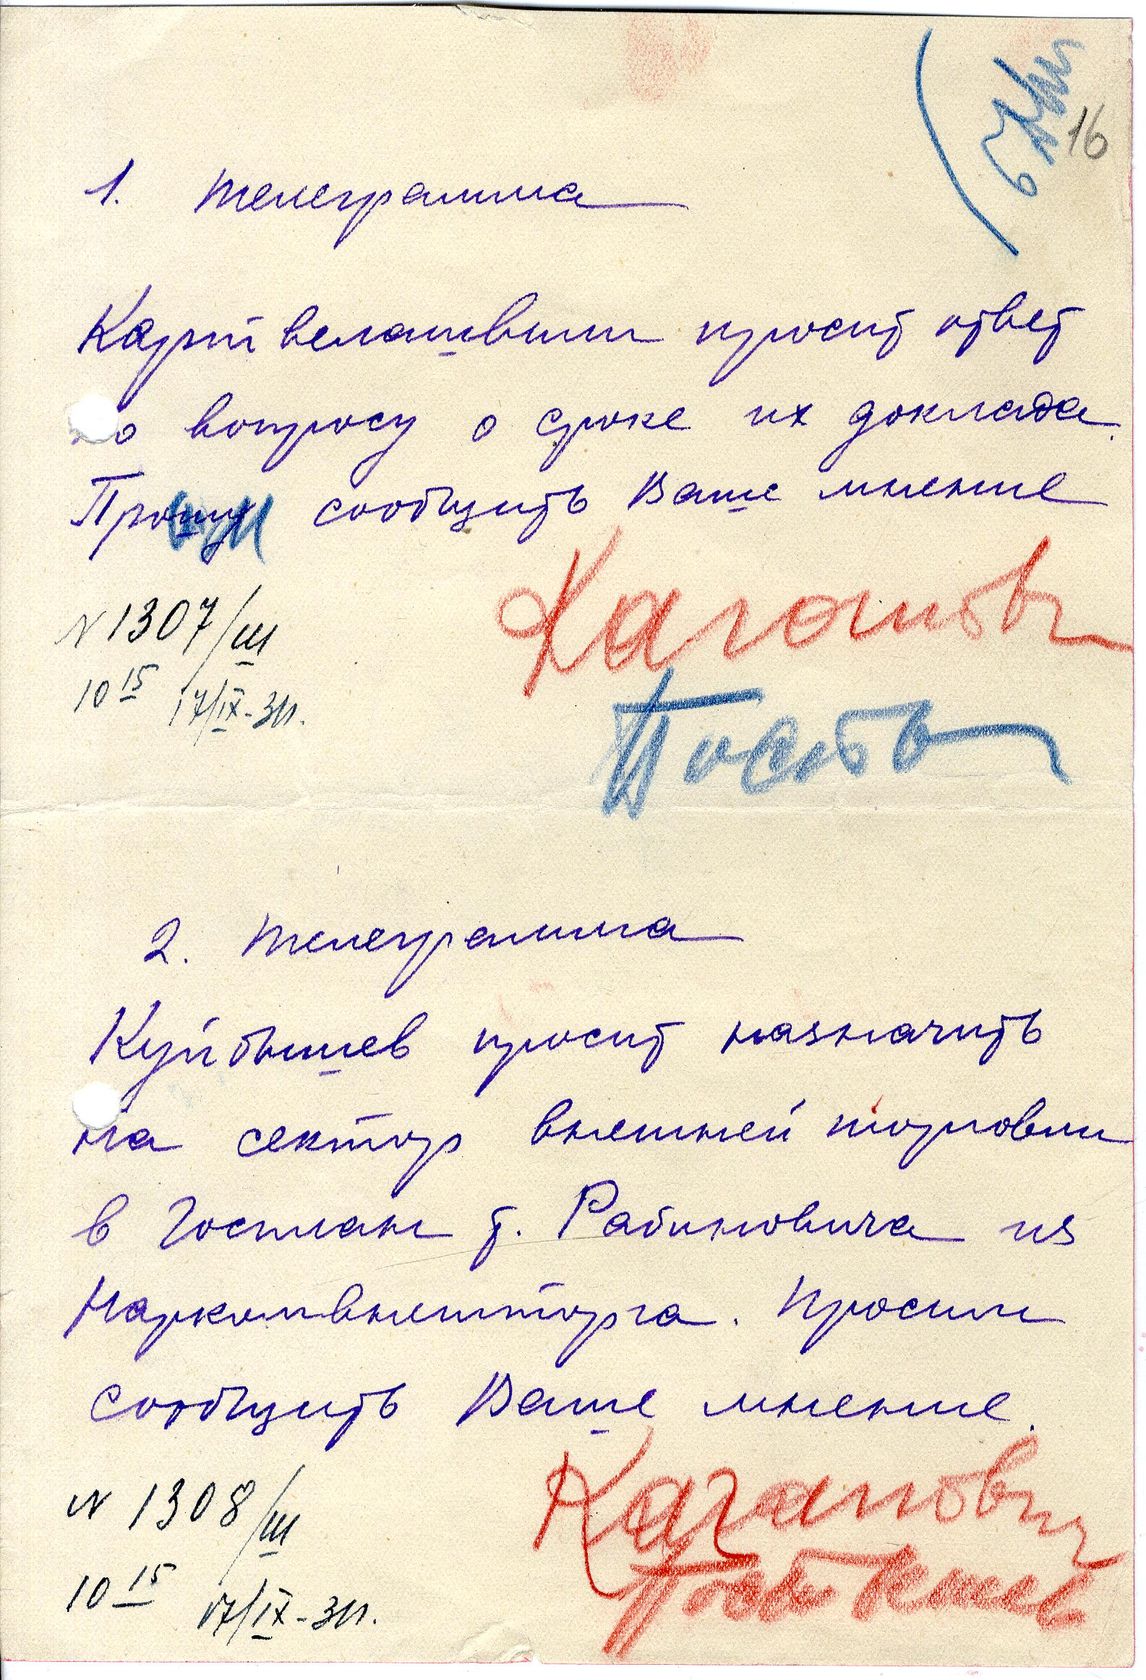 16
1. телеграмма
Картвелашвили просит ответ
по вопросу о сроке их доклада.
Просим сообщить Ваше мнение
Каганович
N 1307/ш
10 15 17/IX-31г.
2. телеграмма
Куйбышев просит назначить
на сектор внешней торговли
в Госплан т. Рабиновича из
Наркомвнешторга. Просим
сообщить Ваше мнение.
Каганович
Постышев
N 1308/ш
10 15 17/IX-31г.